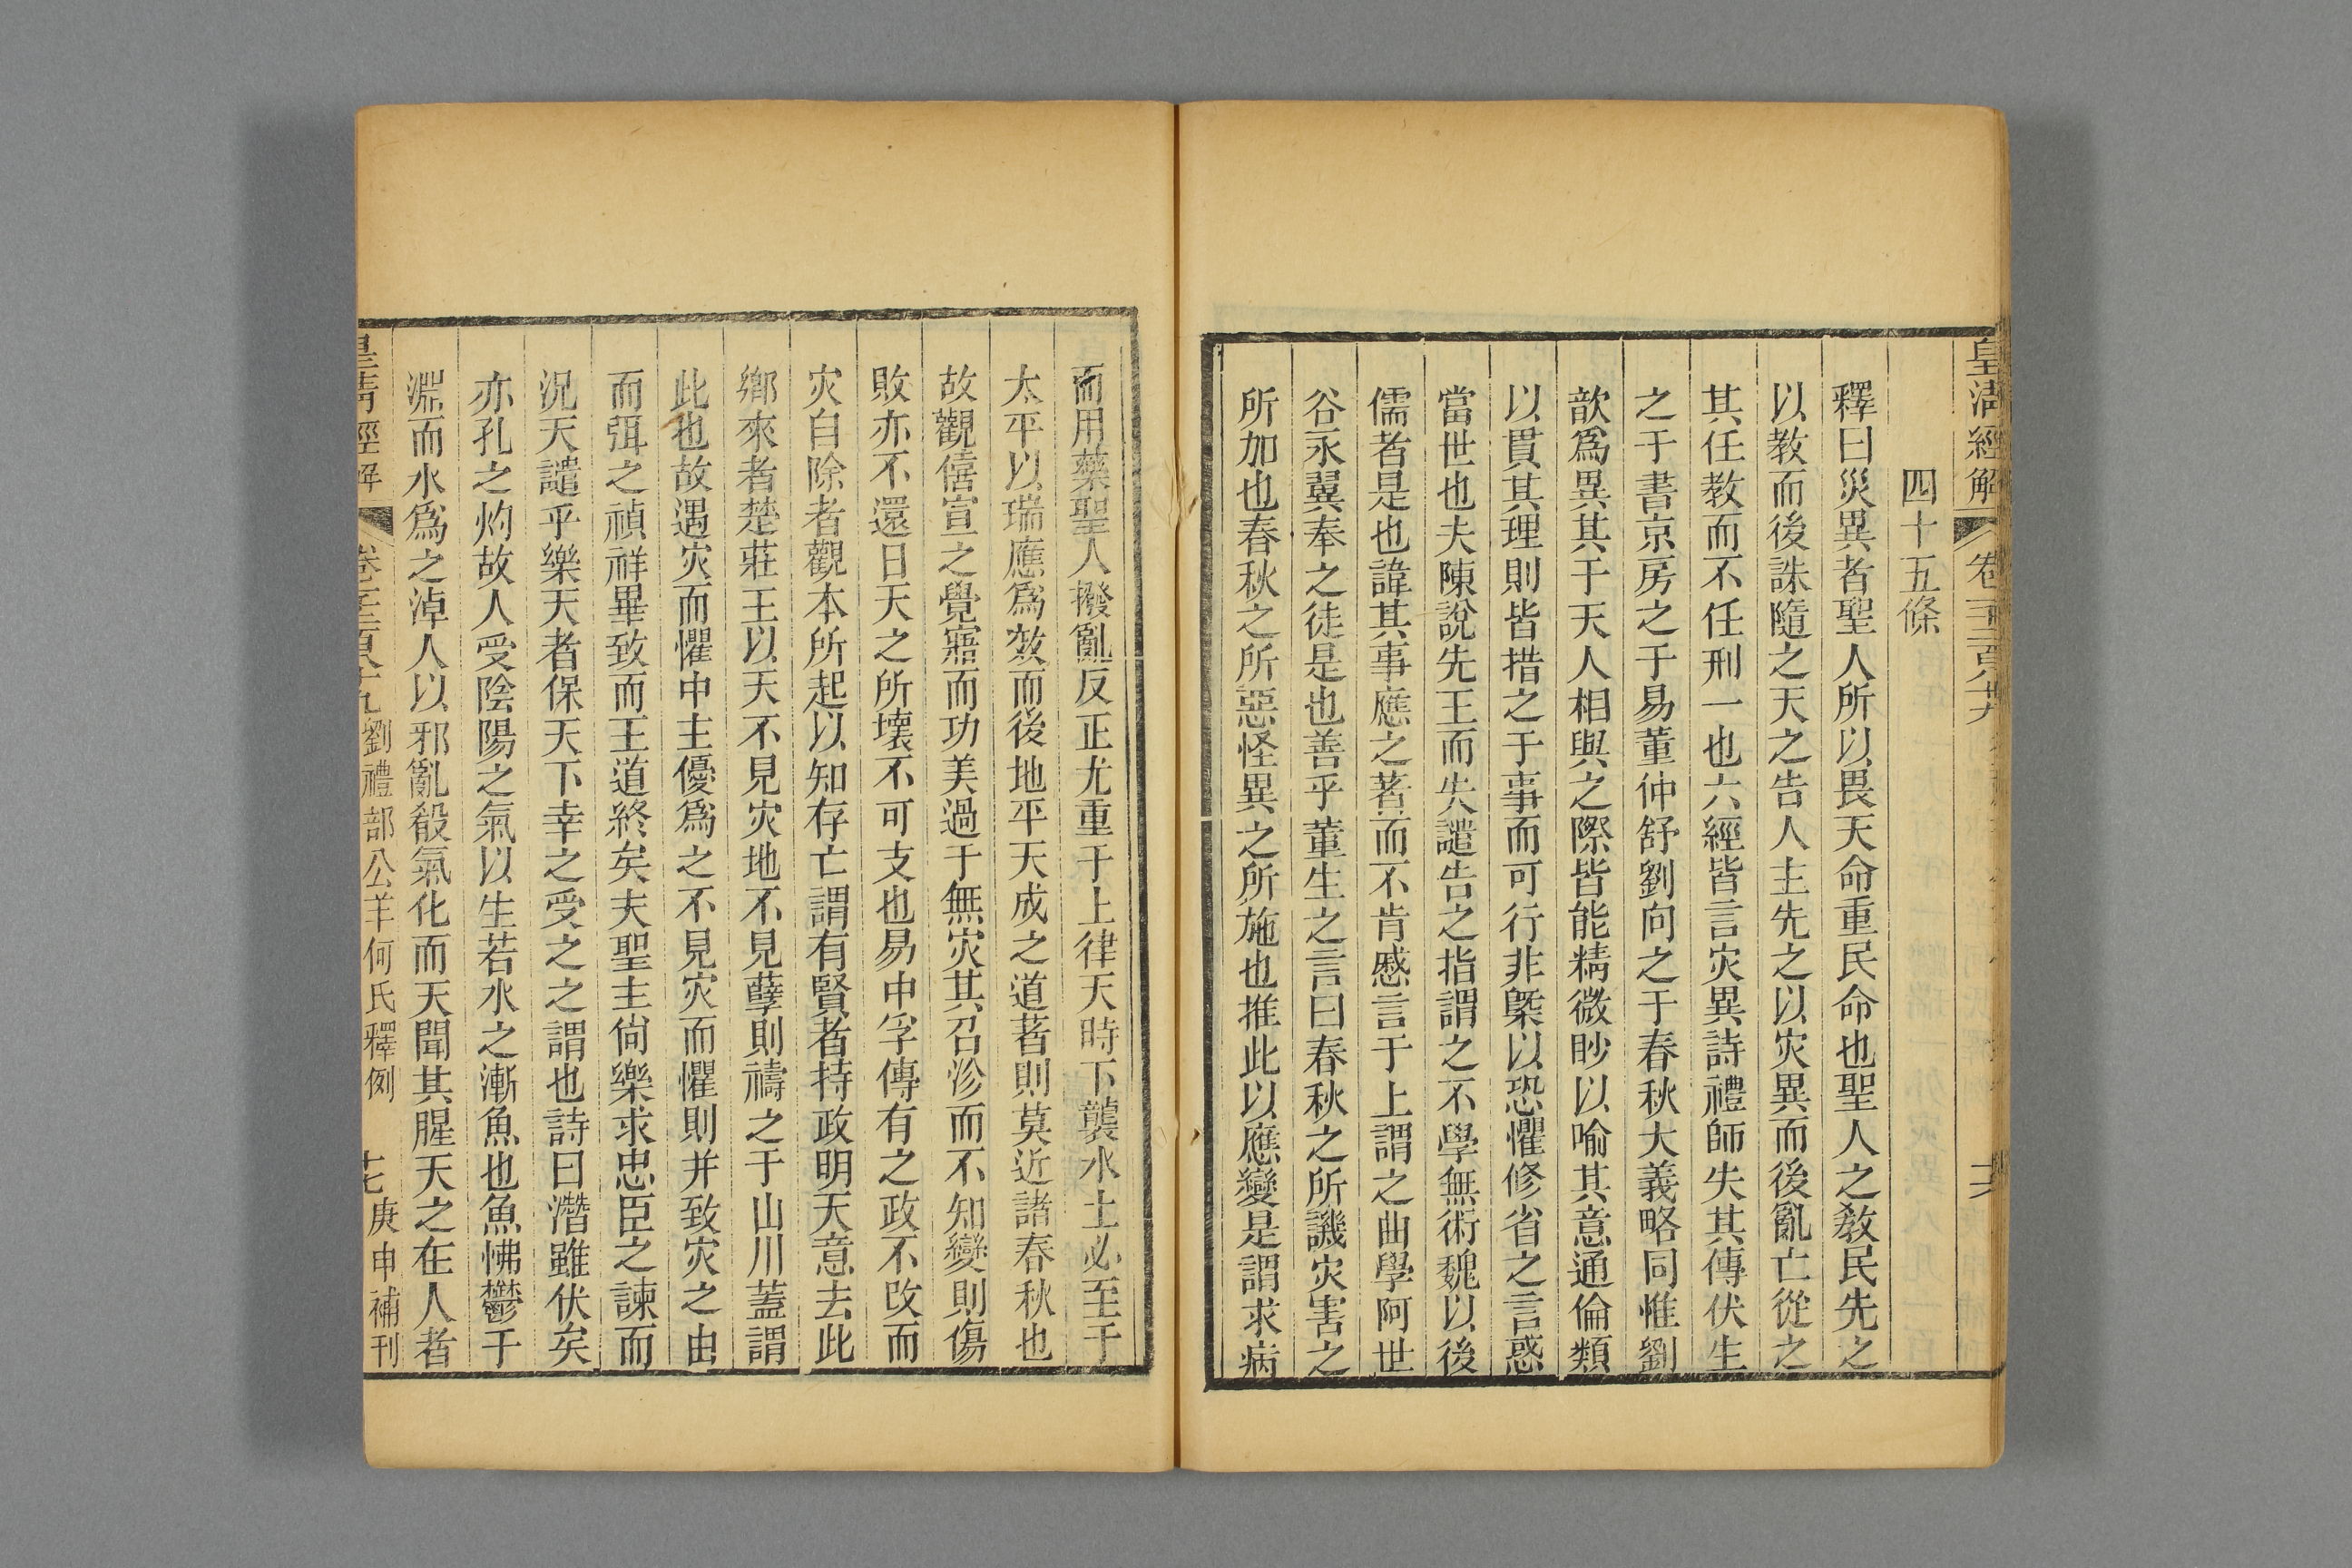 皇清經解 卷一千二百八十九 十六
四十五條
釋曰災異者聖人所以畏天命重民命也聖人之敎民先之
以教而後誅隨之天之告人主先之以灾異而後亂亡從之
其任教而不任刑一也六經皆言灾異詩禮師失其傳伏生
之于書京房之于易董仲舒劉向之于春秋大義略同惟劉
歆爲異其于天人相與之際皆能精微眇以喻其意通倫類
以貫其理則皆措之于事而可行非槩以恐懼修省之言惑
當世也夫陳說先王而失譴告之指謂之不學無術魏以後
儒者是也諱其事應之著而不肯慼言于上謂之曲學阿世
谷永翼奉之徒是也善乎董生之言曰春秋之所譏灾害之
所加也春秋之所惡怪異之所施也推此以應變是謂求病
而用藥聖人撥亂反正尤重于上律天時下襲水土必至于
太平以瑞應爲效而後地平天成之道著則莫近諸春秋也
故觀僖宣之覺寤而功美過于無灾其召沴而不知變則傷
敗亦不還日天之所壞不可支也易中孚傳有之政不改而
灾自除者觀本所起以知存亡謂有賢者持政明天意去此
鄉來者楚莊王以天不見灾地不見孽則禱之于山川蓋謂
此也故遇灾而懼中主優爲之不見灾而懼則并致灾之由
而弭之禎祥畢致而王道終矣夫聖主尙樂求忠臣之諫而
況天譴乎樂天者保天下幸之受之之謂也詩曰潛雖伏矣
亦孔之灼故人受陰陽之氣以生若水之漸魚也魚怫鬱于
淵而水爲之淖人以邪亂殽氣化而天聞其腥天之在人者
皇清經解 卷一千二百八十九 劉禮部公羊何氏釋例 十七 庚申補刊